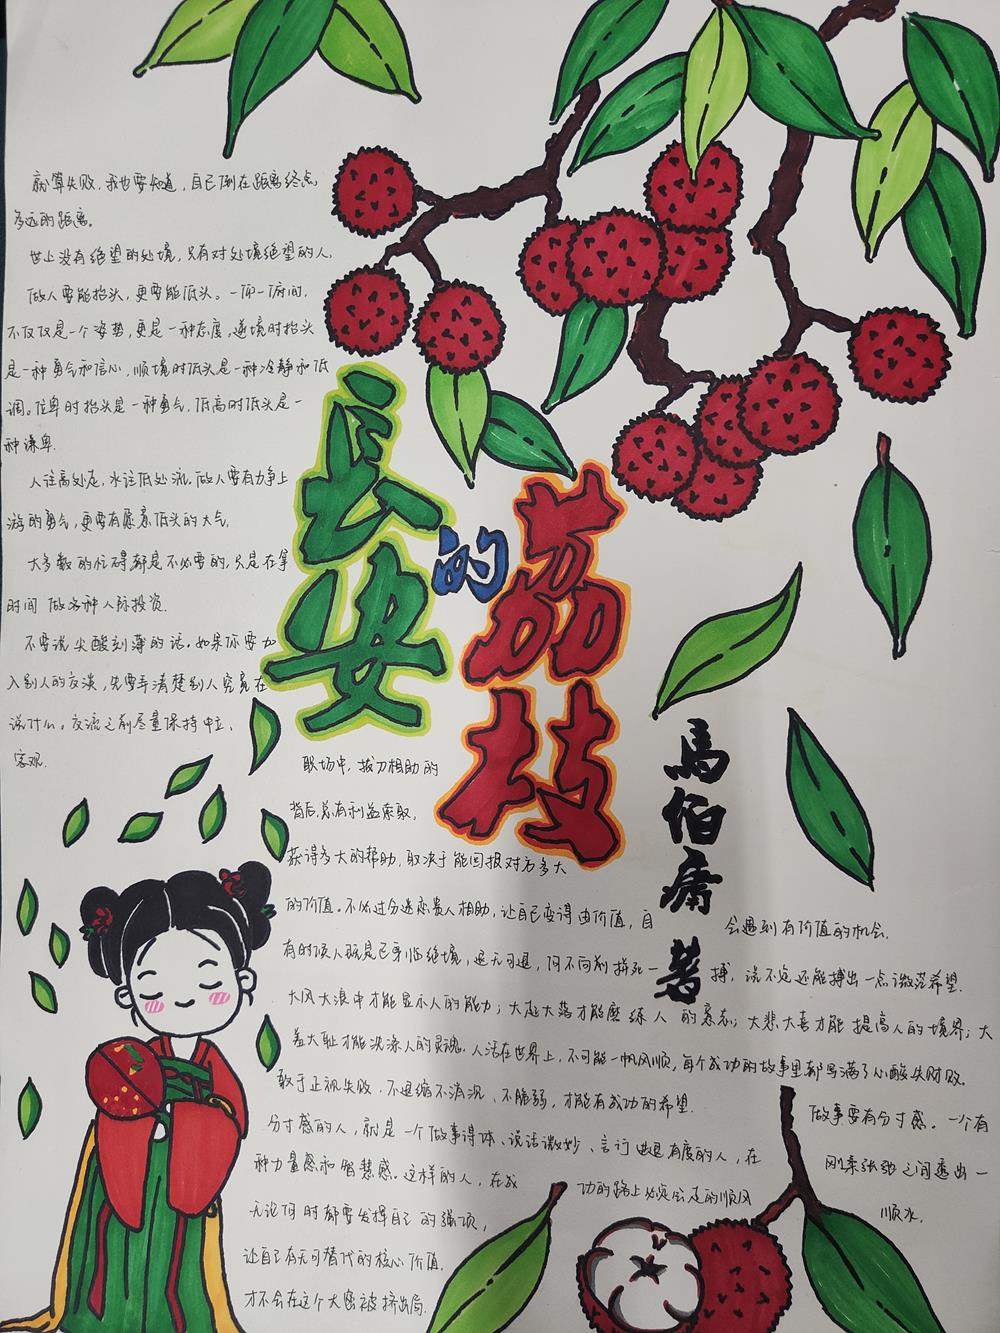 就算失败，我也要知道，自己倒在距离终点
多远的距离。
世上没有绝望的处境，只有对处境绝望的人。
做人要能抬头，更要能低头。一仰一俯间，
不仅仅是一个姿势，更是一种态度。逆境时抬头
是一种勇气和信心，顺境时低头是一种冷静和低
调。位卑时抬头是一种勇气，低高时低头是一
种谦卑。
人往高处走，水往低处流，做人要有力争上
游的勇气，更要有愿意低头的大气。
大多数的忙碌都是不必要的，只是在拿
时间 做各种人际投资。
不要说尖酸刻薄的话。如果你要加
入别人的交谈，先要弄清楚别人究竟在
说什么。交流之前尽量保持中立、
客观。
长安
的
荔枝
馬伯庸 著
职场中，拔刀相助的
背后，总有利益索取，
获得多大的帮助，取决于能回报对方多大
的价值。不必过分迷恋贵人相助，让自己变得由价值，自 会遇到有价值的机会。
有时候人既是已身临绝境，退无可退，何不向前拼死一 搏，说不定还能搏出一点微茫希望。
大风大浪中才能显示人的能力；大起大落才能磨练人 的意志；大悲大喜才能 提高人的境界；大
羞大耻才能洗涤人的灵魂。人活在世界上，不可能一帆风顺，每个成功的故事里都写满了心酸失败。
敢于正视失败、不退缩不消沉、不脆弱，才能有成功的希望。
做事要有分寸感。一个有
分寸感的人，就是一个做事得体、说话微妙、言行 有度的人，在 刚柔张弛之间透出一
种力量感和智慧感。这样的人，在成 功的路上必定会走的顺风 顺水。
无论何时都要发挥自己的强项，
让自己有无可替代的核心价值，
才不会在这个大 被挤出局。